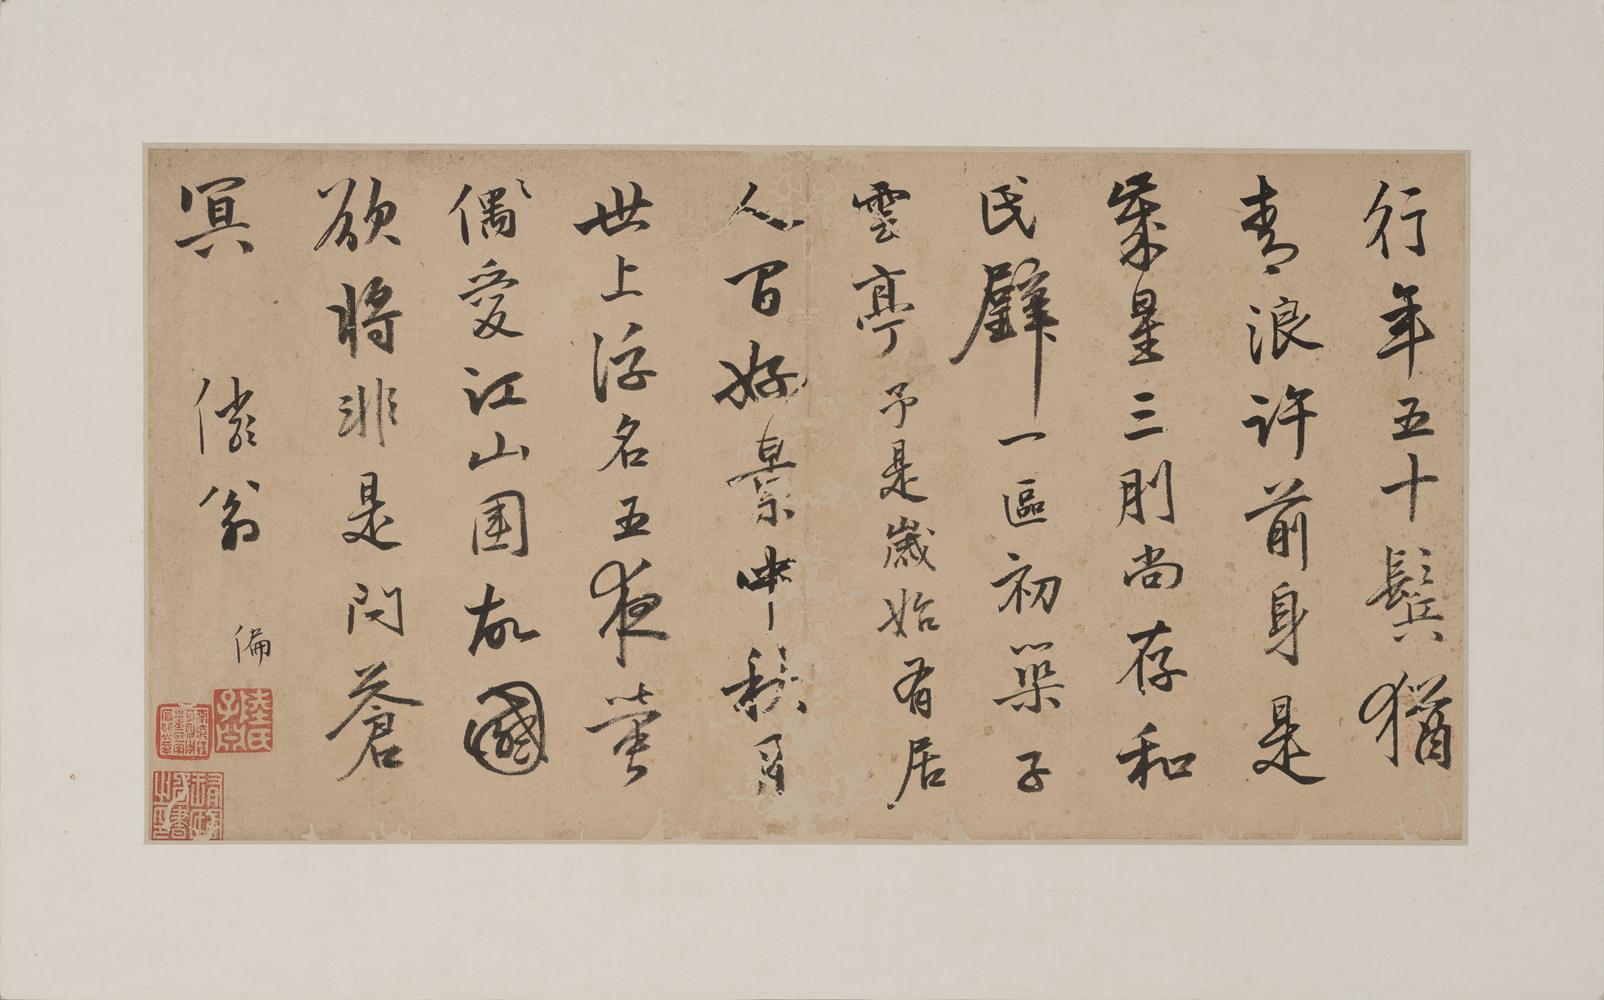 行年五十鬢猶
青浪許前身是
歲星三刖尚存和
氏璧一區初築子
雲亭予是歲始有居
人間好景中秋月
世上浮名五夜螢
偶愛江山圍故國
欲將非是問蒼
冥
翁
偏